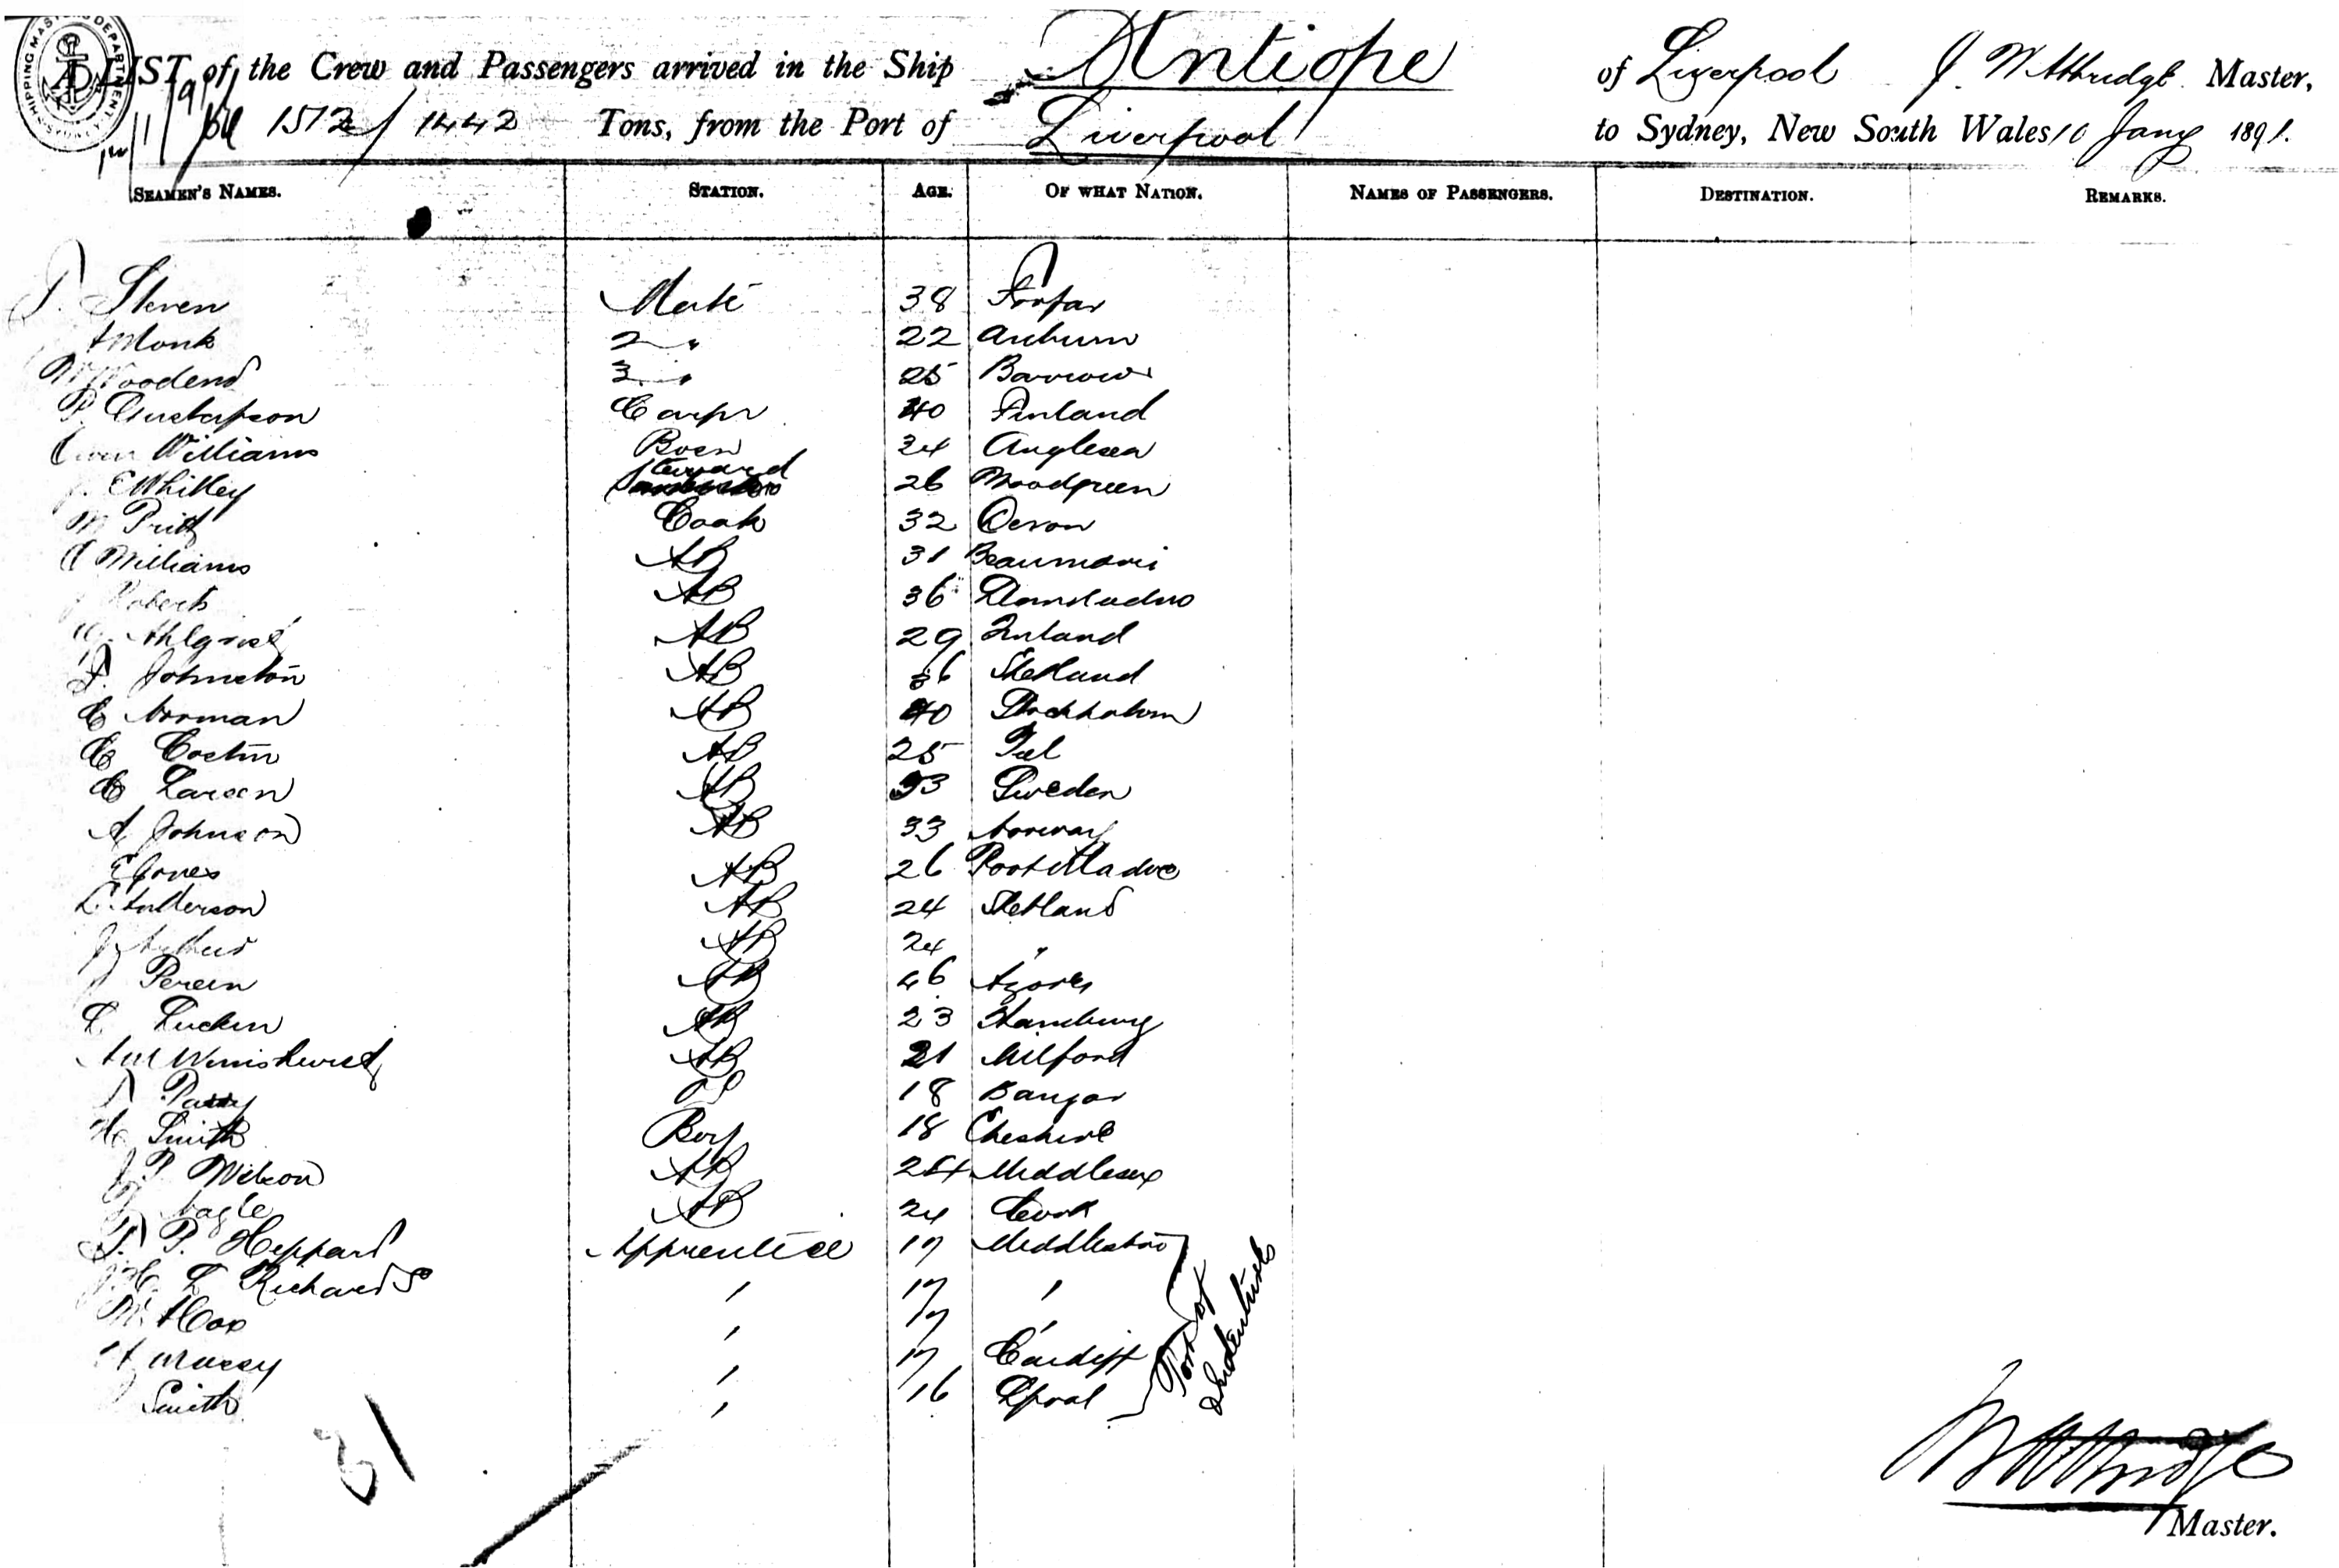 SHIPPING MASTER'S DEPARTMENT
LIST of the Crew and Passengers arrived in the Ship Antiope of Liverpool J. W Attridge Master,
1572/1442 Tons, from the Port of Liverpool to Sydney, New South Wales 10 Jany 1891.
SEAMEN'S NAMES. STATION. AGE. OF WHAT NATION. NAMES OF PASSENGERS. DESTINATION. REMARKS.
J. Steven Mate 38 Forfar
A Monk 2 " 22
W Woodend 3 " 25 Barrow
P. Gustafson Carpr 40 Finland
Owen Williams Bosn 34 Anglesea
J. E Whitley Steward 26 Woodgreen
W Pritt Cook 32 Devon
Williams AB 31 Beaumaris
Roberts AB 36 Llandudno
Ahlqvist AB 29 Finland
J. Johnston AB 36 Shetland
C Norman AB 40 Stockholm
C Costin AB 25
C Larsen AB 33 Sweden
A Johnson AB 33 Norway
E Jones AB 26 Port Madoc
L. Anderson AB 24 Shetland
J AB 24 "
J AB 46 Azores
L AB 23 Hamburg
AB 21 Milford
J Parry OS 18 Bangor
H Smith Boy 18 Cheshire
J P. Wilson AB 24 Middlesex
J Nagle AB 24 Cork
J. P. Heppard Apprentice 17 Middlesbro
H. L Richards " 17 "
W. A Cox " 17 "
H Massey " 17 Cardiff
Smith " 16 Lpool
Port of
Indentures
31
W Attridge
Master.